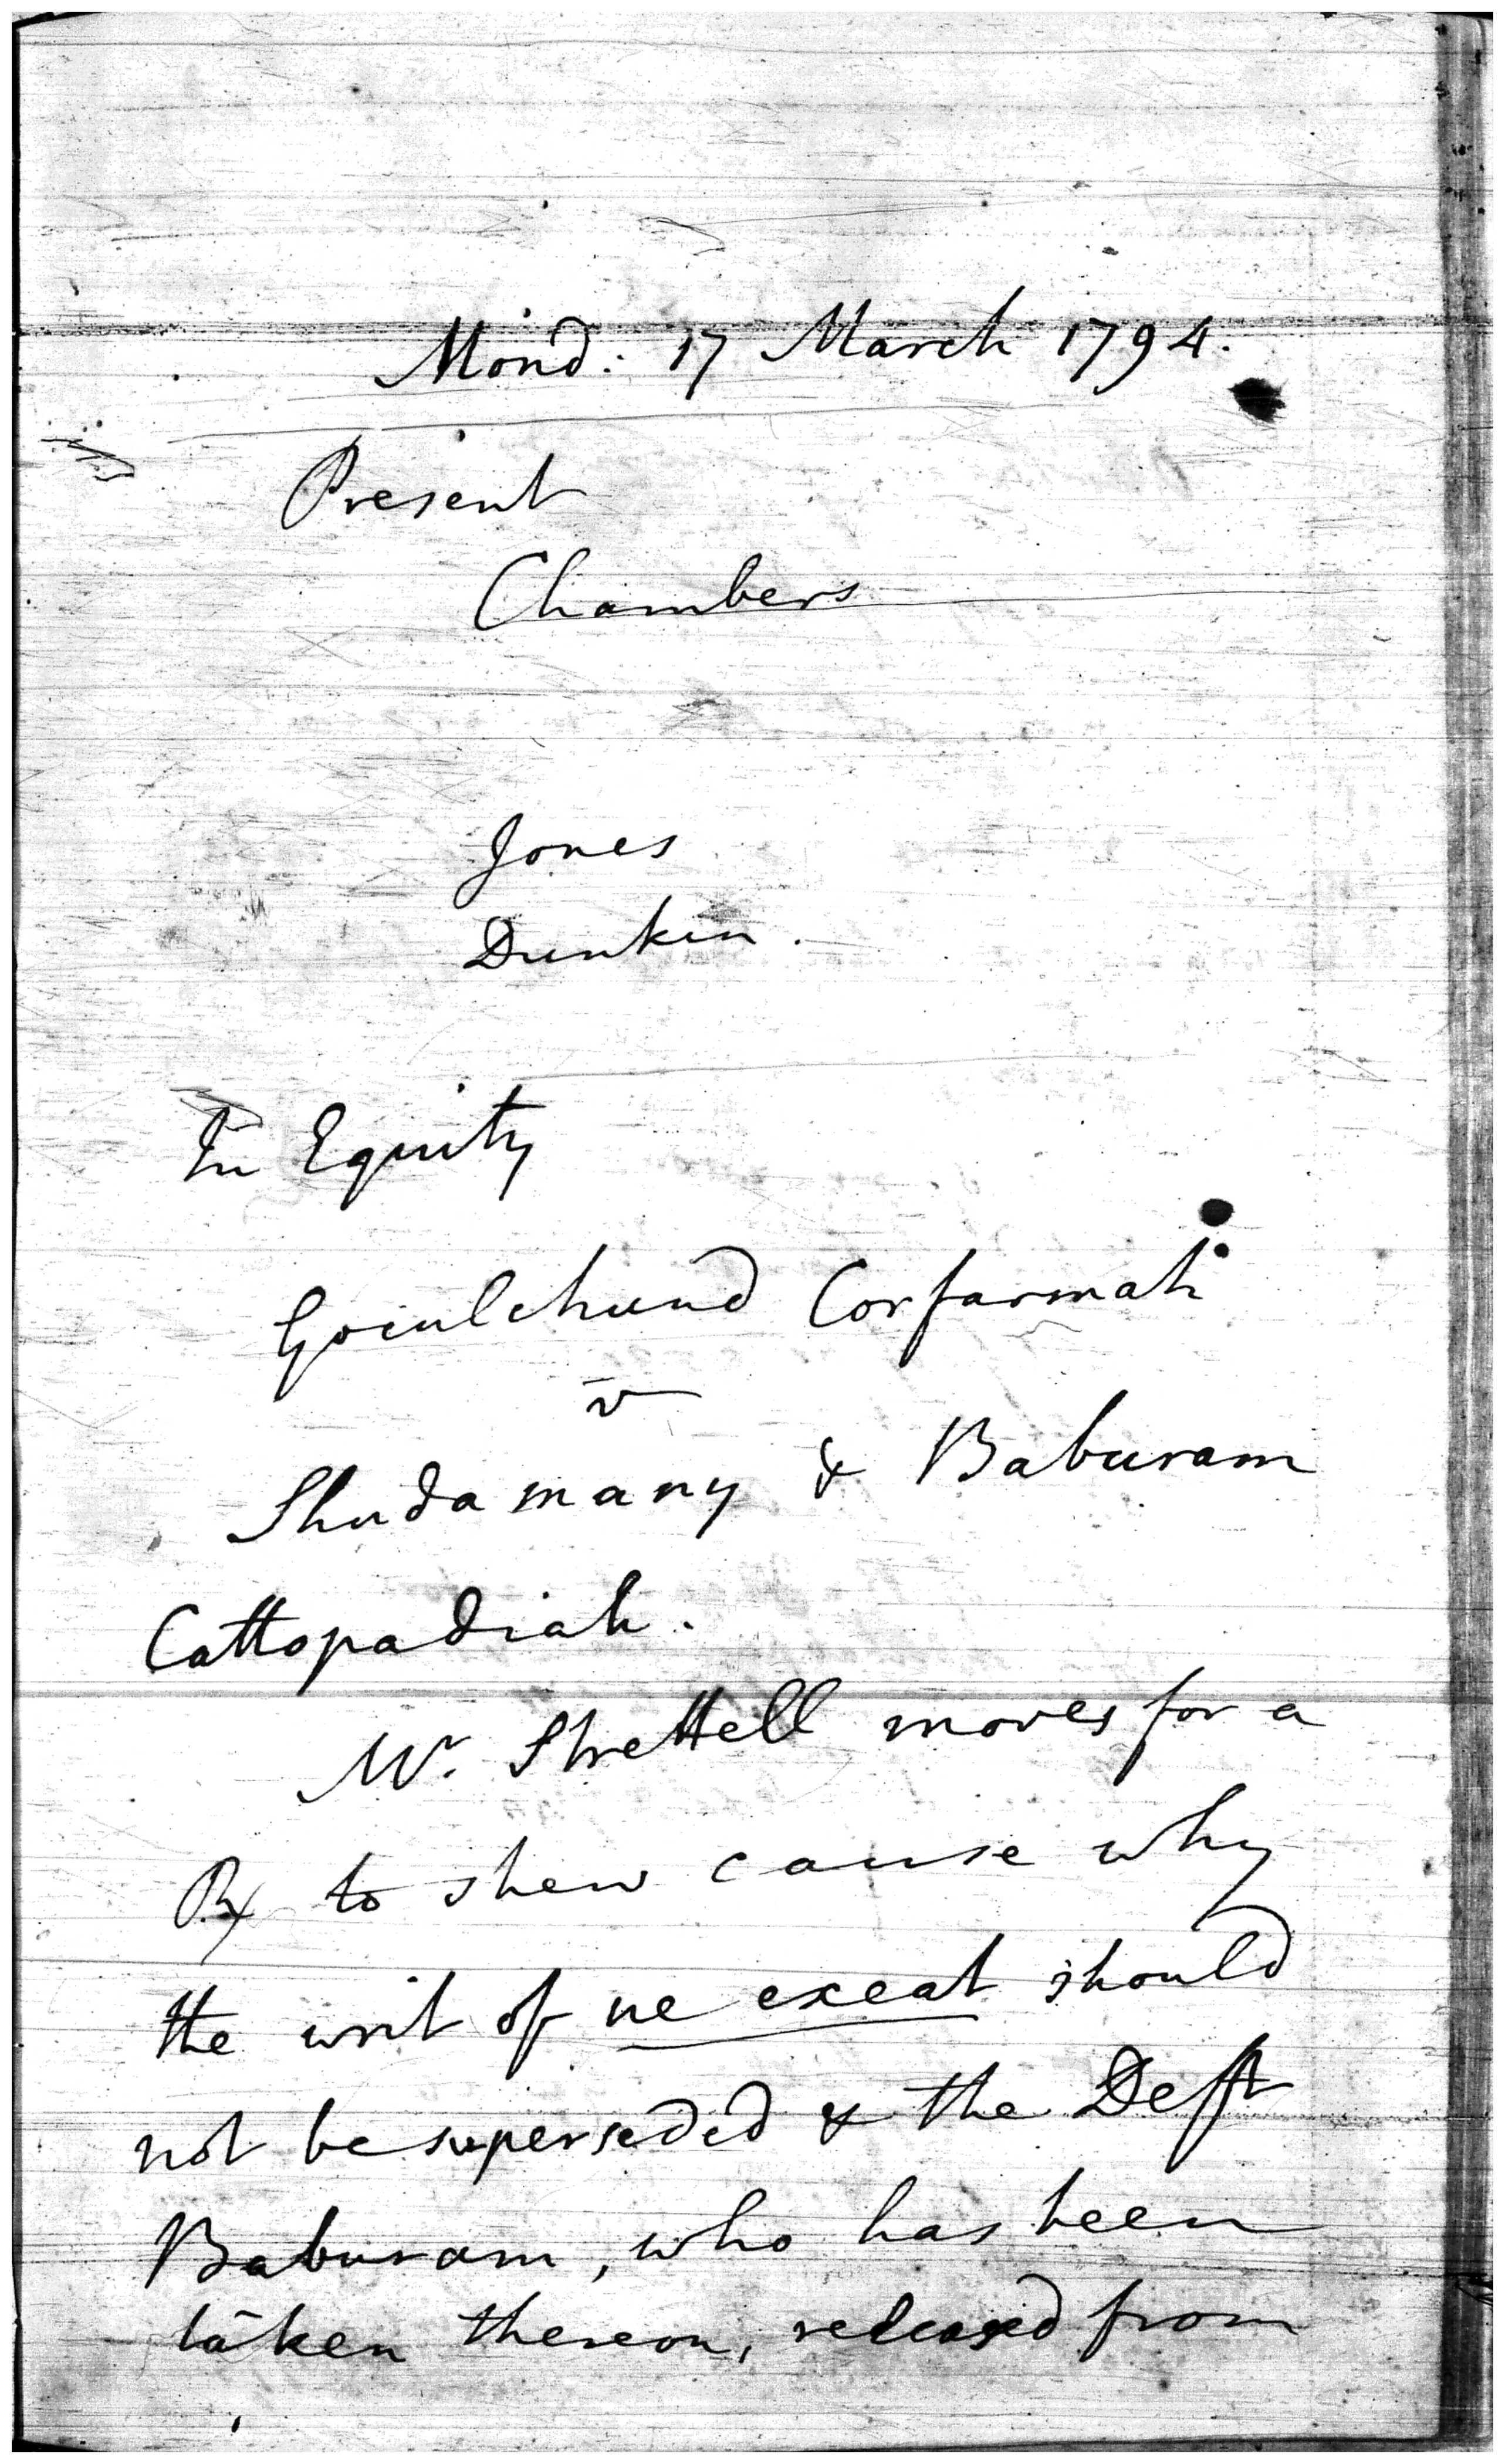 Mond: 17 March 1794.
Present
Chambers
Jones
Dunkin.
In Equity
Goculchund Corformah
v
Shudamany & Baburam
Cattopadiah.
Mr. Strettell moves for a
to shew cause why
the writ of ne exeat should
not be superseded & the Deft
Baburam, who has been
taken thereon, released from